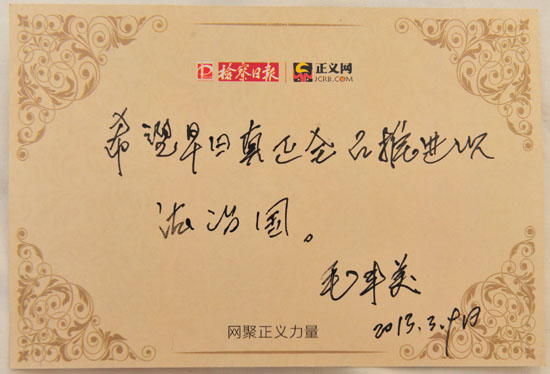 检察日报 正义网
JCRB.COM
希望早日真正全面推进以
法治国。
毛丰美
2013.3.9日
网聚正义力量